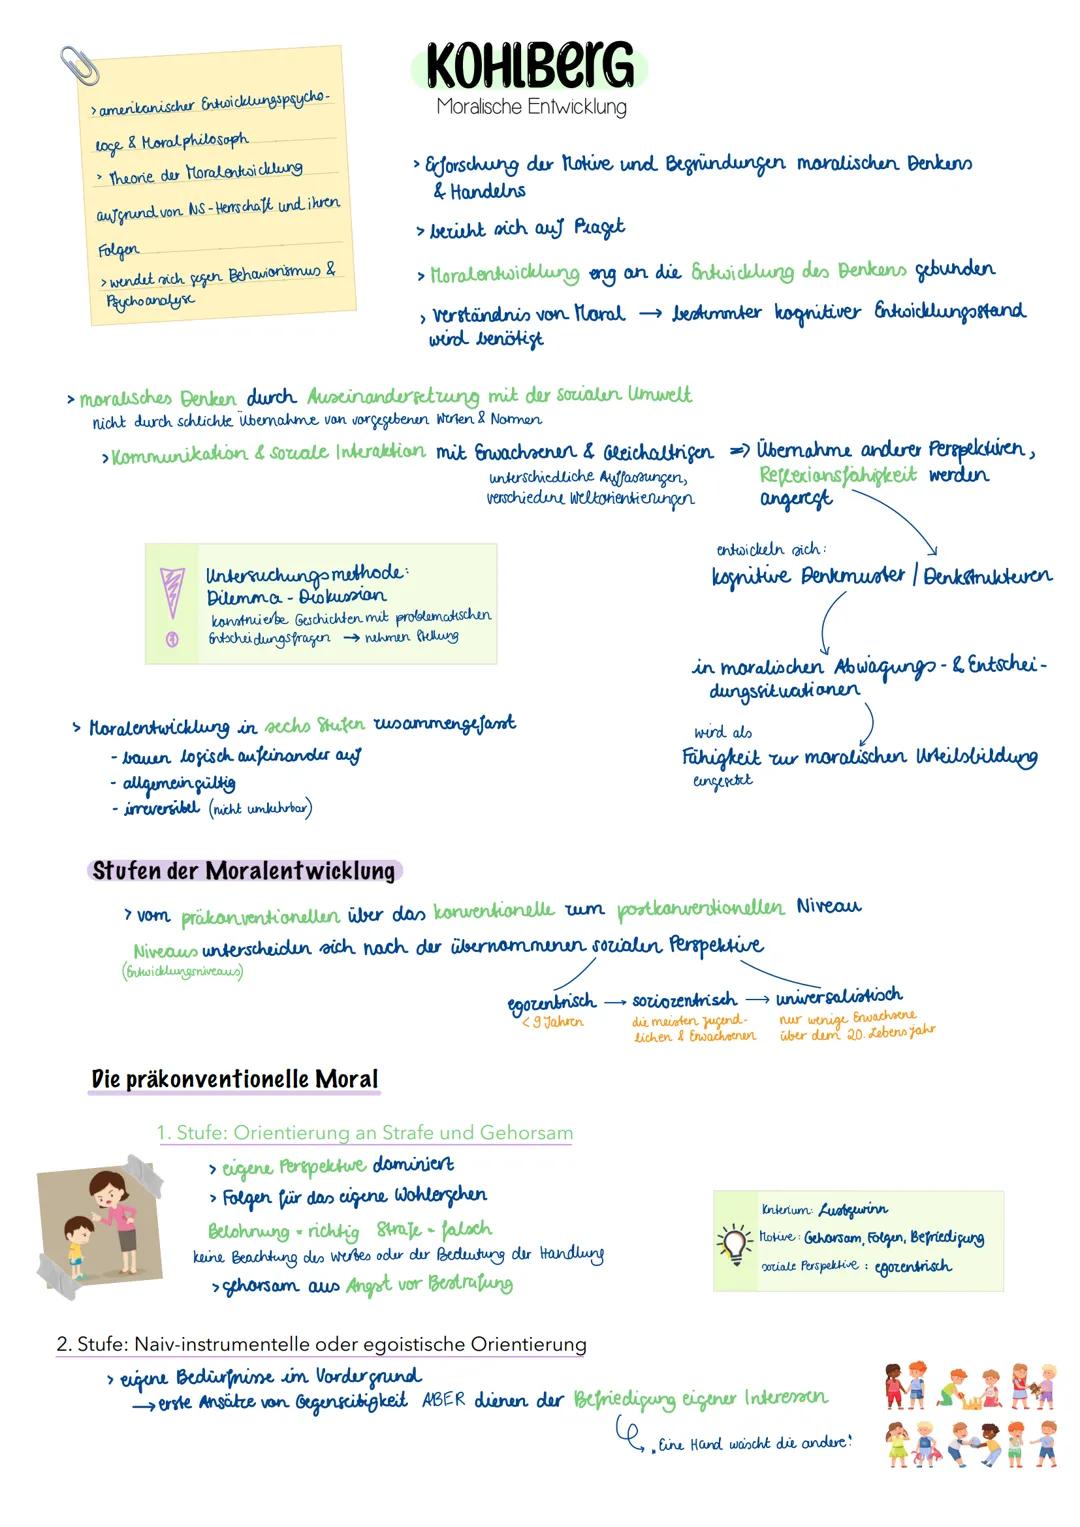 KOHLBERG
Moralische Entwicklung
> amerikanischer Entwicklungspsycho-
loge & Moralphilosoph
> Theorie der Moralentwicklung
aufgrund von NS-Herrschaft und ihren
Folgen
> wendet sich gegen Behaviorismus &
Psychoanalyse
> Erforschung der Motive und Begründungen moralischen Denkens
& Handelns
> bezieht sich auf Piaget
> Moralentwicklung eng an die Entwicklung des Denkens gebunden
> Verständnis von Moral → bestimmter kognitiver Entwicklungsstand
wird benötigt
> moralisches Denken durch Auseinandersetzung mit der sozialen Umwelt
nicht durch schlichte Übernahme von vorgegebenen Werten & Normen
> Kommunikation & soziale Interaktion mit Erwachsenen & Gleichaltrigen => Übernahme anderer Perspektiven,
unterschiedliche Auffassungen,
verschiedene Weltorientierungen
Reflexionsfähigkeit werden
angeregt
entwickeln sich:
kognitive Denkmuster / Denkstrukturen
in moralischen Abwägungs- & Entschei-
dungssituationen
wird als
Fähigkeit zur moralischen Urteilsbildung
eingesetzt
Untersuchungsmethode:
Dilemma - Diskussion
konstruierte Geschichten mit problematischen
Entscheidungsfragen → nehmen Stellung
> Moralentwicklung in sechs Stufen zusammengefasst
- bauen logisch aufeinander auf
- allgemeingültig
- irreversibel (nicht umkehrbar)
Stufen der Moralentwicklung
> vom präkonventionellen über das konventionelle zum postkonventionellen Niveau
Niveaus unterscheiden sich nach der übernommenen sozialen Perspektive
(Entwicklungsniveaus)
egozentrisch → soziozentrisch → universalistisch
< 9 Jahren
die meisten Jugend-
lichen & Erwachsenen
nur wenige Erwachsene
über dem 20. Lebensjahr
Die präkonventionelle Moral
1. Stufe: Orientierung an Strafe und Gehorsam
> eigene Perspektive dominiert
> Folgen für das eigene Wohlergehen
Belohnung = richtig Strafe = falsch
keine Beachtung des Wertes oder der Bedeutung der Handlung
> gehorsam aus Angst vor Bestrafung
Kriterium: Lustgewinn
Motive: Gehorsam, Folgen, Befriedigung
soziale Perspektive: egozentrisch
2. Stufe: Naiv-instrumentelle oder egoistische Orientierung
> eigene Bedürfnisse im Vordergrund
→ erste Ansätze von Gegenseitigkeit ABER dienen der Befriedigung eigener Interessen
"Eine Hand wäscht die andere!